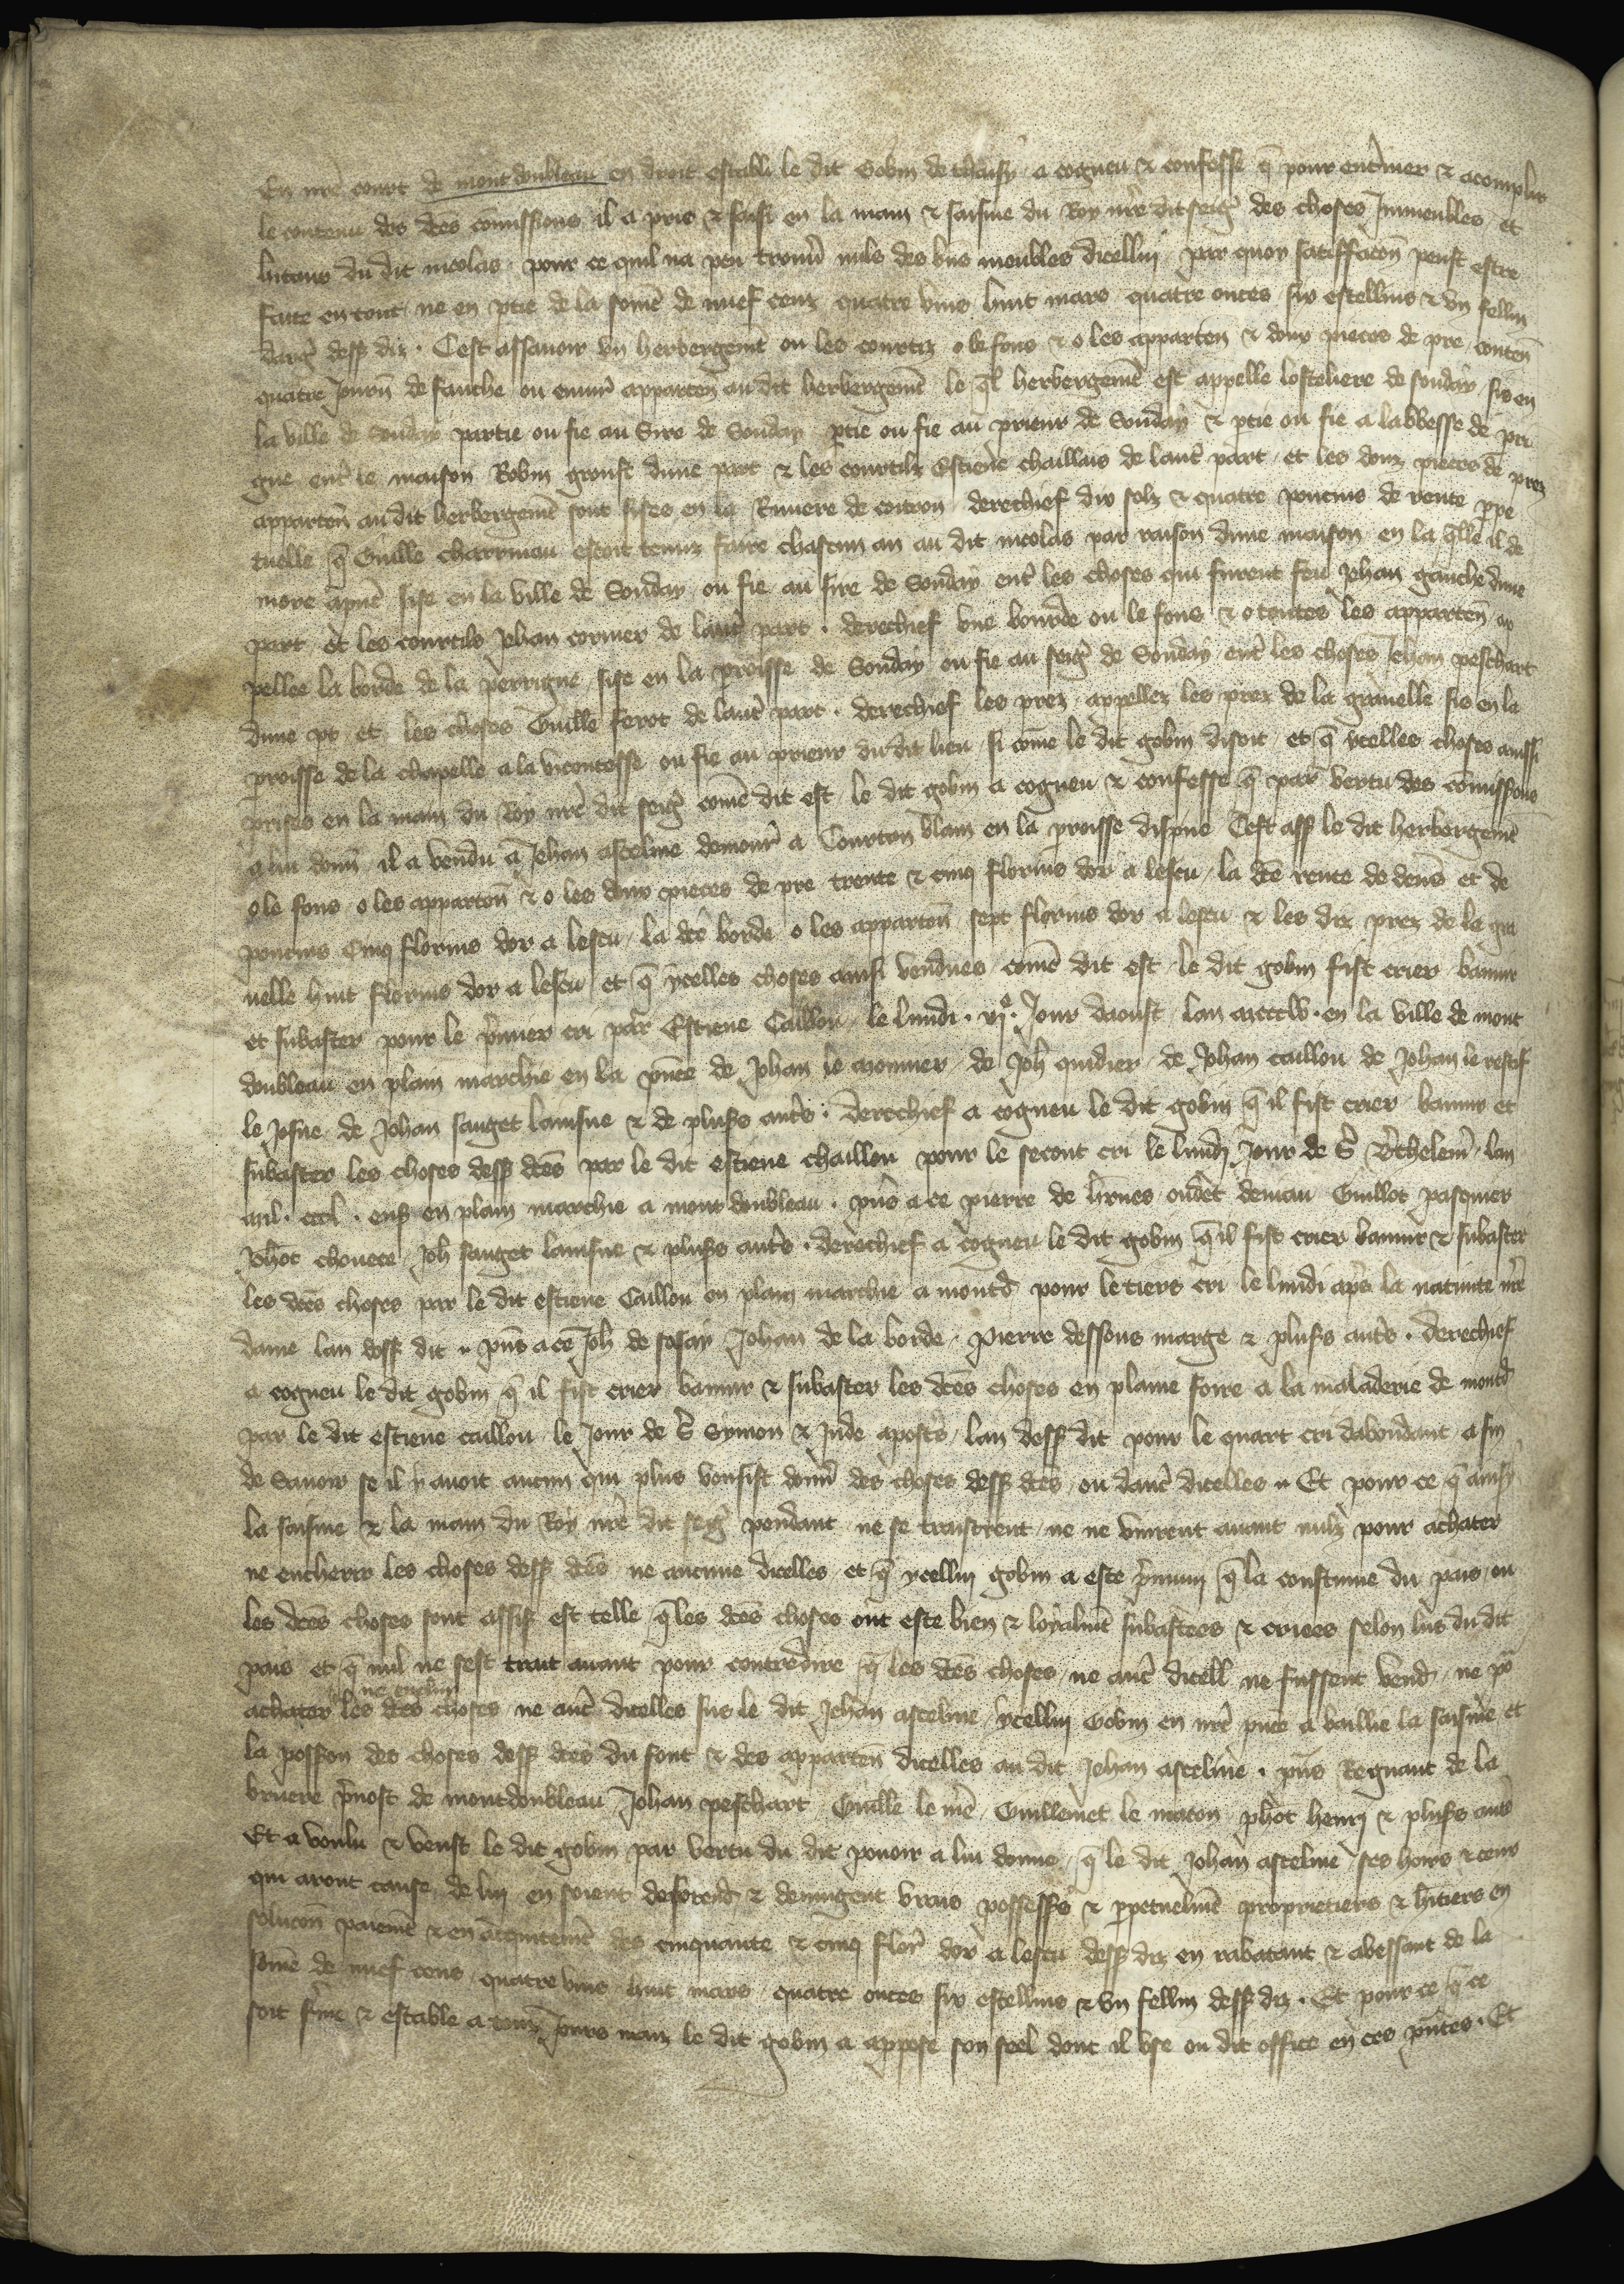 En nrē court de mont doubleau en droit establi le dit Gobin de a cogneu & confesse q̄ pour ent'iner & acomplir
le contenu des dc̄es cōmissions il a pris & saisi en la main & saisine du Roy nr̄e dit seigr̄ des choses Inmeubles et
du dit nicolas pour ce quil na peu trouv' nuls des biēs meubles dicelluj par quoy satiffacōn peust estre
faite en tout ne en ptie de la somē de nuef cenz quatre vins huit mars quatre onces six estellins & vn fellin
dargr̄ dess diz . Cest assauoir vn herbergemēt ou les courtiz o le fons & o les apparten̄ & doux pieces de pre conten̄
quatre journ̄ de fauche ou enuir̄ apparten̄ au dit herbergemēt le q̄l herbergemēt est appelle losteliere de sonday sis en
la ville de Sonday partie ou fie au Sire de Sonday ptie ou fie au prieur de Sonday & ptie ou fie a labbesse de pri
gne ent' le maison Robin groust dune part & les courtilz Estiene chaillau de laut' part et les douz pieces de prez
apparten̄ au dit herbergemēt sont sises en la Riuiere de coitron derechief dix solz & quatre poucins de rente ppe
tuelle q̄ Guille charruiau estoit tenuz faire chascun an au dit nicolas par raison dune maison en la q̄lle il de
more apn̄t sise en la ville de Sonday ou fie au sire de Sonday ent' les choses qui furent feu Jehan gauche dune
part et les courtils Jehan cormer de laut' part . derechief vne bourde ou le fons & o toutes les apparten̄ ap
pellee la borde de la perrigne sise en la proisse de Sonday ou fie au seigr̄ de Sonday ent' les choses Jehan peschart
dune pt et les choses Guille ferot de laut' part . derechief les prez appellez les prez de la grauelle sis en la
proisse de la chapelle a la vicontesse ou fie au prieur du dit lieu si come le dit gobin disoit et q̄ ycelles choses ainssi
prises en la main du Roy nr̄e dit seigr̄ comē dit est le dit gobin a cogneu & confesse q̄ par vertu des cōmissions
a lui donn̄ il a vendu a Jehan asceline demour̄ a Courton blain en la proisse dispne Cest ass̄ le dit herbergemēt
o le fons o les apparten̄ & o les doux pieces de pre trente & cinq florins dor a lescu la dc̄e rente de den̄s et de
poucins Cinq florins dor a lescu la dc̄e borde o les apparten̄ sept florins dor a lescu & les diz prez de la gra
uelle huit florins dor a lescu et q̄ ycelles choses ainsi vendues comē dit est le dit gobin fist crier bannir
et subaster pour le p'mier cri par Estiene Caillou le lundi . vje . Jour daoust lan mccclv . en la ville de mont
doubleau en plain marchie en la pn̄ce de Johan le monnier de Joh̄ quidier de Johan caillou de Johan le restif
le Josne de Johan sauget lainsne & de pluss aut's . derechief a cogneu le dit gobin q̄ il fist crier bannir et
subaster les choses dess dc̄es par le dit estiene chaillou pour le secont cri le lundj Jour de S' B'thelem̄ lan
mil . cccl . ens en plain marchie a mont doubleau . pn̄s a ce pierre de oudet deniau Guillot pasquier
chouece Joh̄ sauget lainsne & pluss aut's . derechief a cogneu le dit gobin q̄ il fist crier bannir & subaster
les dc̄es choses par le dit estiene Caillou en plain marchie a montd̄ pour le tiers cri le lundi ap's la natiuite nr̄e
dame lan dess dit . pn̄s a ce Joh̄ de sosay Johan de la borde Pierre dessous marge & pluss aut's . derechief
a cogneu le dit gobin q̄ il fist crier bannir & subaster les dc̄es choses en plaine foire a la maladerie de montd̄
par le dit estiene caillou le Jour de S' Symon & Jude apost's lan dess dit pour le quart cri dabondant a fin
de Sauoir se il y auoit aucun qui plus vousist donn̄ des choses dess dc̄es ou dauc̄ dicelles Et pour ce q̄ ainsy
la saisine & la main du Roy nr̄e dit seigr̄ pendant ne se traistrent ne ne vinrent auant nulz pour achater
ne encherir les choses dess dc̄es ne aucune dicelles et q̄ ycelluj gobin a este q̄ la coustume du pais ou
les dc̄es choses sont assis est telle q̄ les dc̄es choses ont este bien & loyalmēt subastees & criees selon lus du dit
pais et q̄ nul ne sest trait auant pour contredire q̄ les dc̄es choses ne auc̄ dicell ne fussent vend̄ ne po'
ne encherir
achater les dc̄es choses ne auc̄ dicelles sus le dit Jehan asceline ycelluj Gobin en nr̄e pn̄ce a baillie la saisine et
la posson̄ des choses dess dc̄es du font & des apparten̄ dicelles au dit Jehan asceline . pn̄s Regnaut de la
bruere p'uost de montdoubleau Johan peschart Guille le mē Guillemet le maton phot henrj & pluss aut's
Et a voulu & veust le dit gobin par vertu du dit pouoir a lui donne q̄ le dit Johan asceline ses hoirs & ceux
qui aront cause de luj en soient desorend̄ & deuiegnent vraiz possess̄s & ppetuelmēt proprietiers & h'itiers en
solucōn paiemēt & en acquitemēt des cinquante & cinq flor̄ dor a lescu dess diz en rabatant & abessant de la
somē de nuef cens quatre vins huit mars quatre onces six estellins & vn fellin dess diz . Et pour ce q̄ ce
soit f'me & estable a touz Jours maiz le dit gobin a appose son seel dont il vse ou dit office en ces pn̄tes . Et